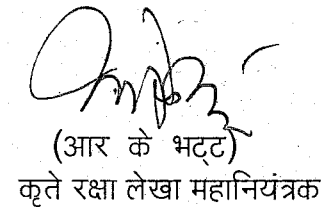 (आर के भट्ट)
कृते रक्षा लेखा महानियंत्रक